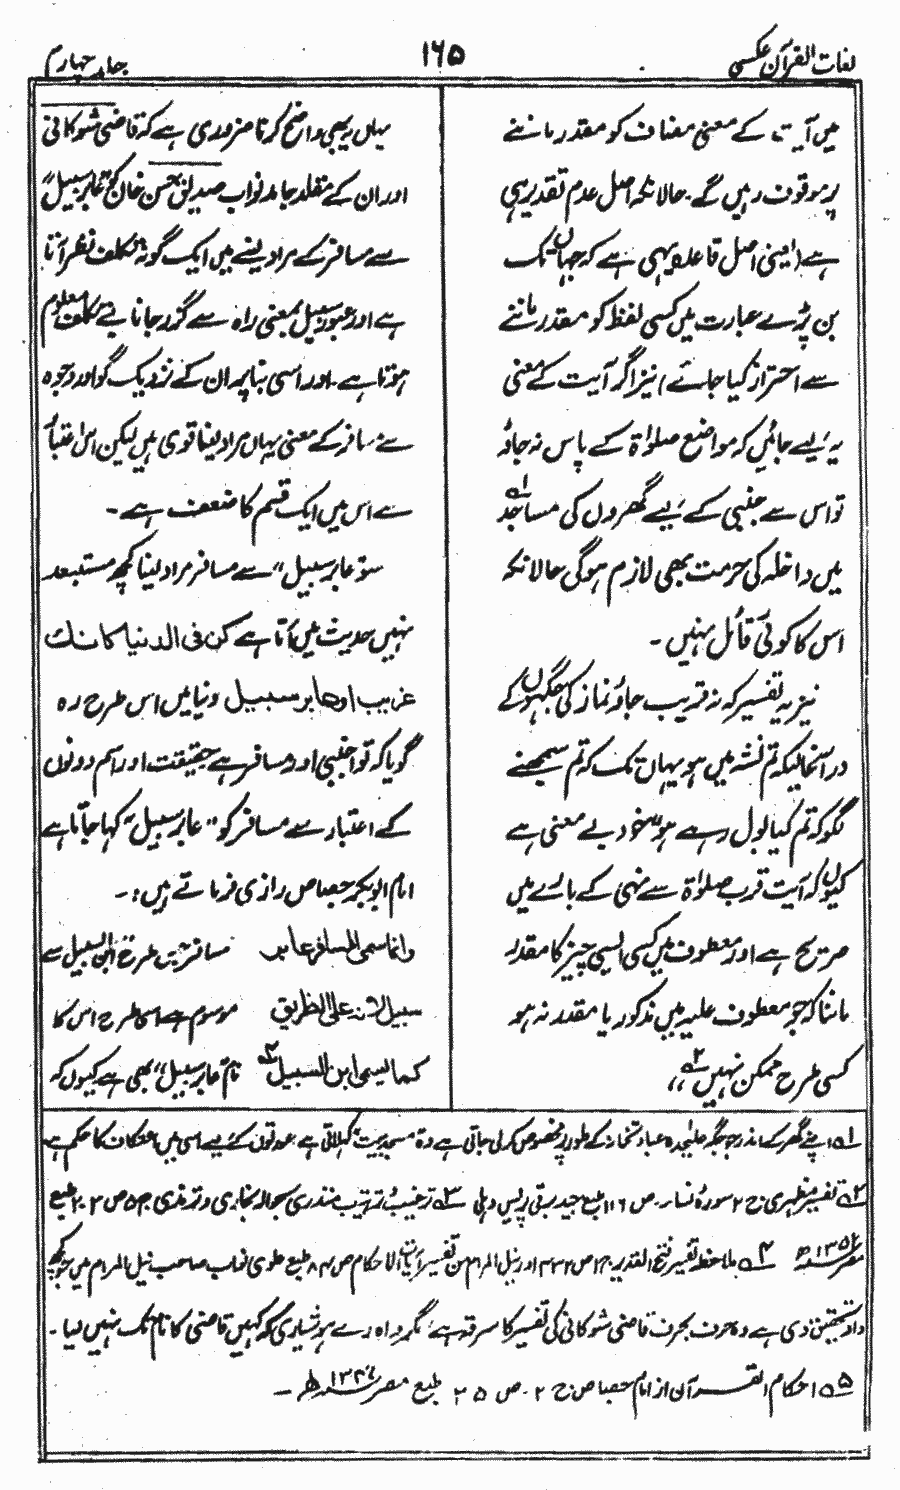 لغات القرآن عکسی
۱۶۵
جلد چہارم
میں آیت کے معنی مضاف کو مقدر ماننے
پر موقوف رہیں گے۔ حالانکہ اصل عدم تقدیر ہی
ہے (یعنی اصل قاعدہ یہی ہے کہ جہاں تک
بن پڑے عبارت میں کسی لفظ کو مقدر ماننے
سے احتراز کیا جائے) نیز اگر آیت کے معنی
یہ لیے جائیں کہ مواضع صلوٰۃ کے پاس نہ جاؤ
تو اس سے جنبی کے لیے گھروں کی مساجد ۱؎
میں داخلہ کی حرمت بھی لازم ہوگی حالانکہ
اس کا کوئی قائل نہیں۔
نیز یہ تفسیر کہ نہ قریب جاؤ نماز کی جگہوں کے
درآنحالیکہ تم نشہ میں ہو یہاں تک کہ تم سمجھنے
لگو کہ تم کیا بول رہے ہو، خود بے معنی ہے
کیوں کہ آیت قرب صلوٰۃ سے نہی کے بارے میں
صریح ہے اور معطوف میں کسی ایسی چیز کا مقدر
ماننا کہ جو معطوف علیہ میں مذکور یا مقدر نہ ہو
کسی طرح ممکن نہیں ۲؎،،
یہاں یہ بھی واضح کرنا ضروری ہے کہ قاضی شوکانی
اور ان کے مقلد جامد نواب صدیق حسن خان کو "عابر سبیل"
سے مسافر کے مراد لینے میں ایک گونہ تکلف نظر آتا
ہے اور عبور سبیل بمعنی راہ سے گزر جانا بے تکلف معلوم
ہوتا ہے۔ اور اسی بنا پر ان کے نزدیک گو اور وجوہ
سے مسافر کے معنی یہاں مراد لینا قوی ہیں لیکن اس اعتبار
سے اس میں ایک قسم کا ضعف ہے۔
سو "عابر سبیل" سے مسافر مراد لینا کچھ مستبعد
نہیں حدیث میں آتا ہے کن فی الدنیا کانک
غریب او عابر سبیل دنیا میں اس طرح رہ
گویا کہ تو اجنبی اور مسافر ہے حقیقت اور اسم دونوں
کے اعتبار سے مسافر کو "عابر سبیل" کہا جاتا ہے
امام ابوبکر جصاص رازی فرماتے ہیں:۔
وانما سمی المسافر عابر مسافر جس طرح ابن السبیل سے
سبیل لانہ علی الطریق موسوم ہے اسی طرح اس کا
کما یسمی ابن السبیل نام "عابر سبیل" بھی ہے کیوں کہ
۱؎ اپنے گھر کے اندر جو جگہ علیحدہ عبادتخانہ کے طور پر مخصوص کرلی جاتی ہے وہ مسجد بیت کہلاتی ہے عورتوں کے لیے اسی میں اعتکاف کا حکم ہے
۲؎ تفسیر مظہری ج ۲ سورۂ نساء۔ ص ۱۱۶ طبع جید برقی پریس دہلی ۳؎ ترغیب و ترہیب منذری بحوالہ بخاری و ترمذی ج ۵ ص ۲۰۲ طبع
مصر ۱۳۵۲ھ ۴؎ ملاحظہ تفسیر فتح القدیر ج ۱ ص ۴۳۲ اور نیل المرام من تفسیر آیات الاحکام ص ۸۴ طبع علوی نواب صاحب نیل المرام میں جو کچھ
داد تحقیق دی ہے وہ حرف بحرف قاضی شوکانی کی تفسیر کا سرقہ ہے، مگر واہ رے ہوشیاری کہ کہیں قاضی کا نام تک نہیں لیا۔
۵؎ احکام القرآن از امام جصاص ج ۲۔ ص ۲۵ طبع مصر ۱۳۴۷ھ ۔